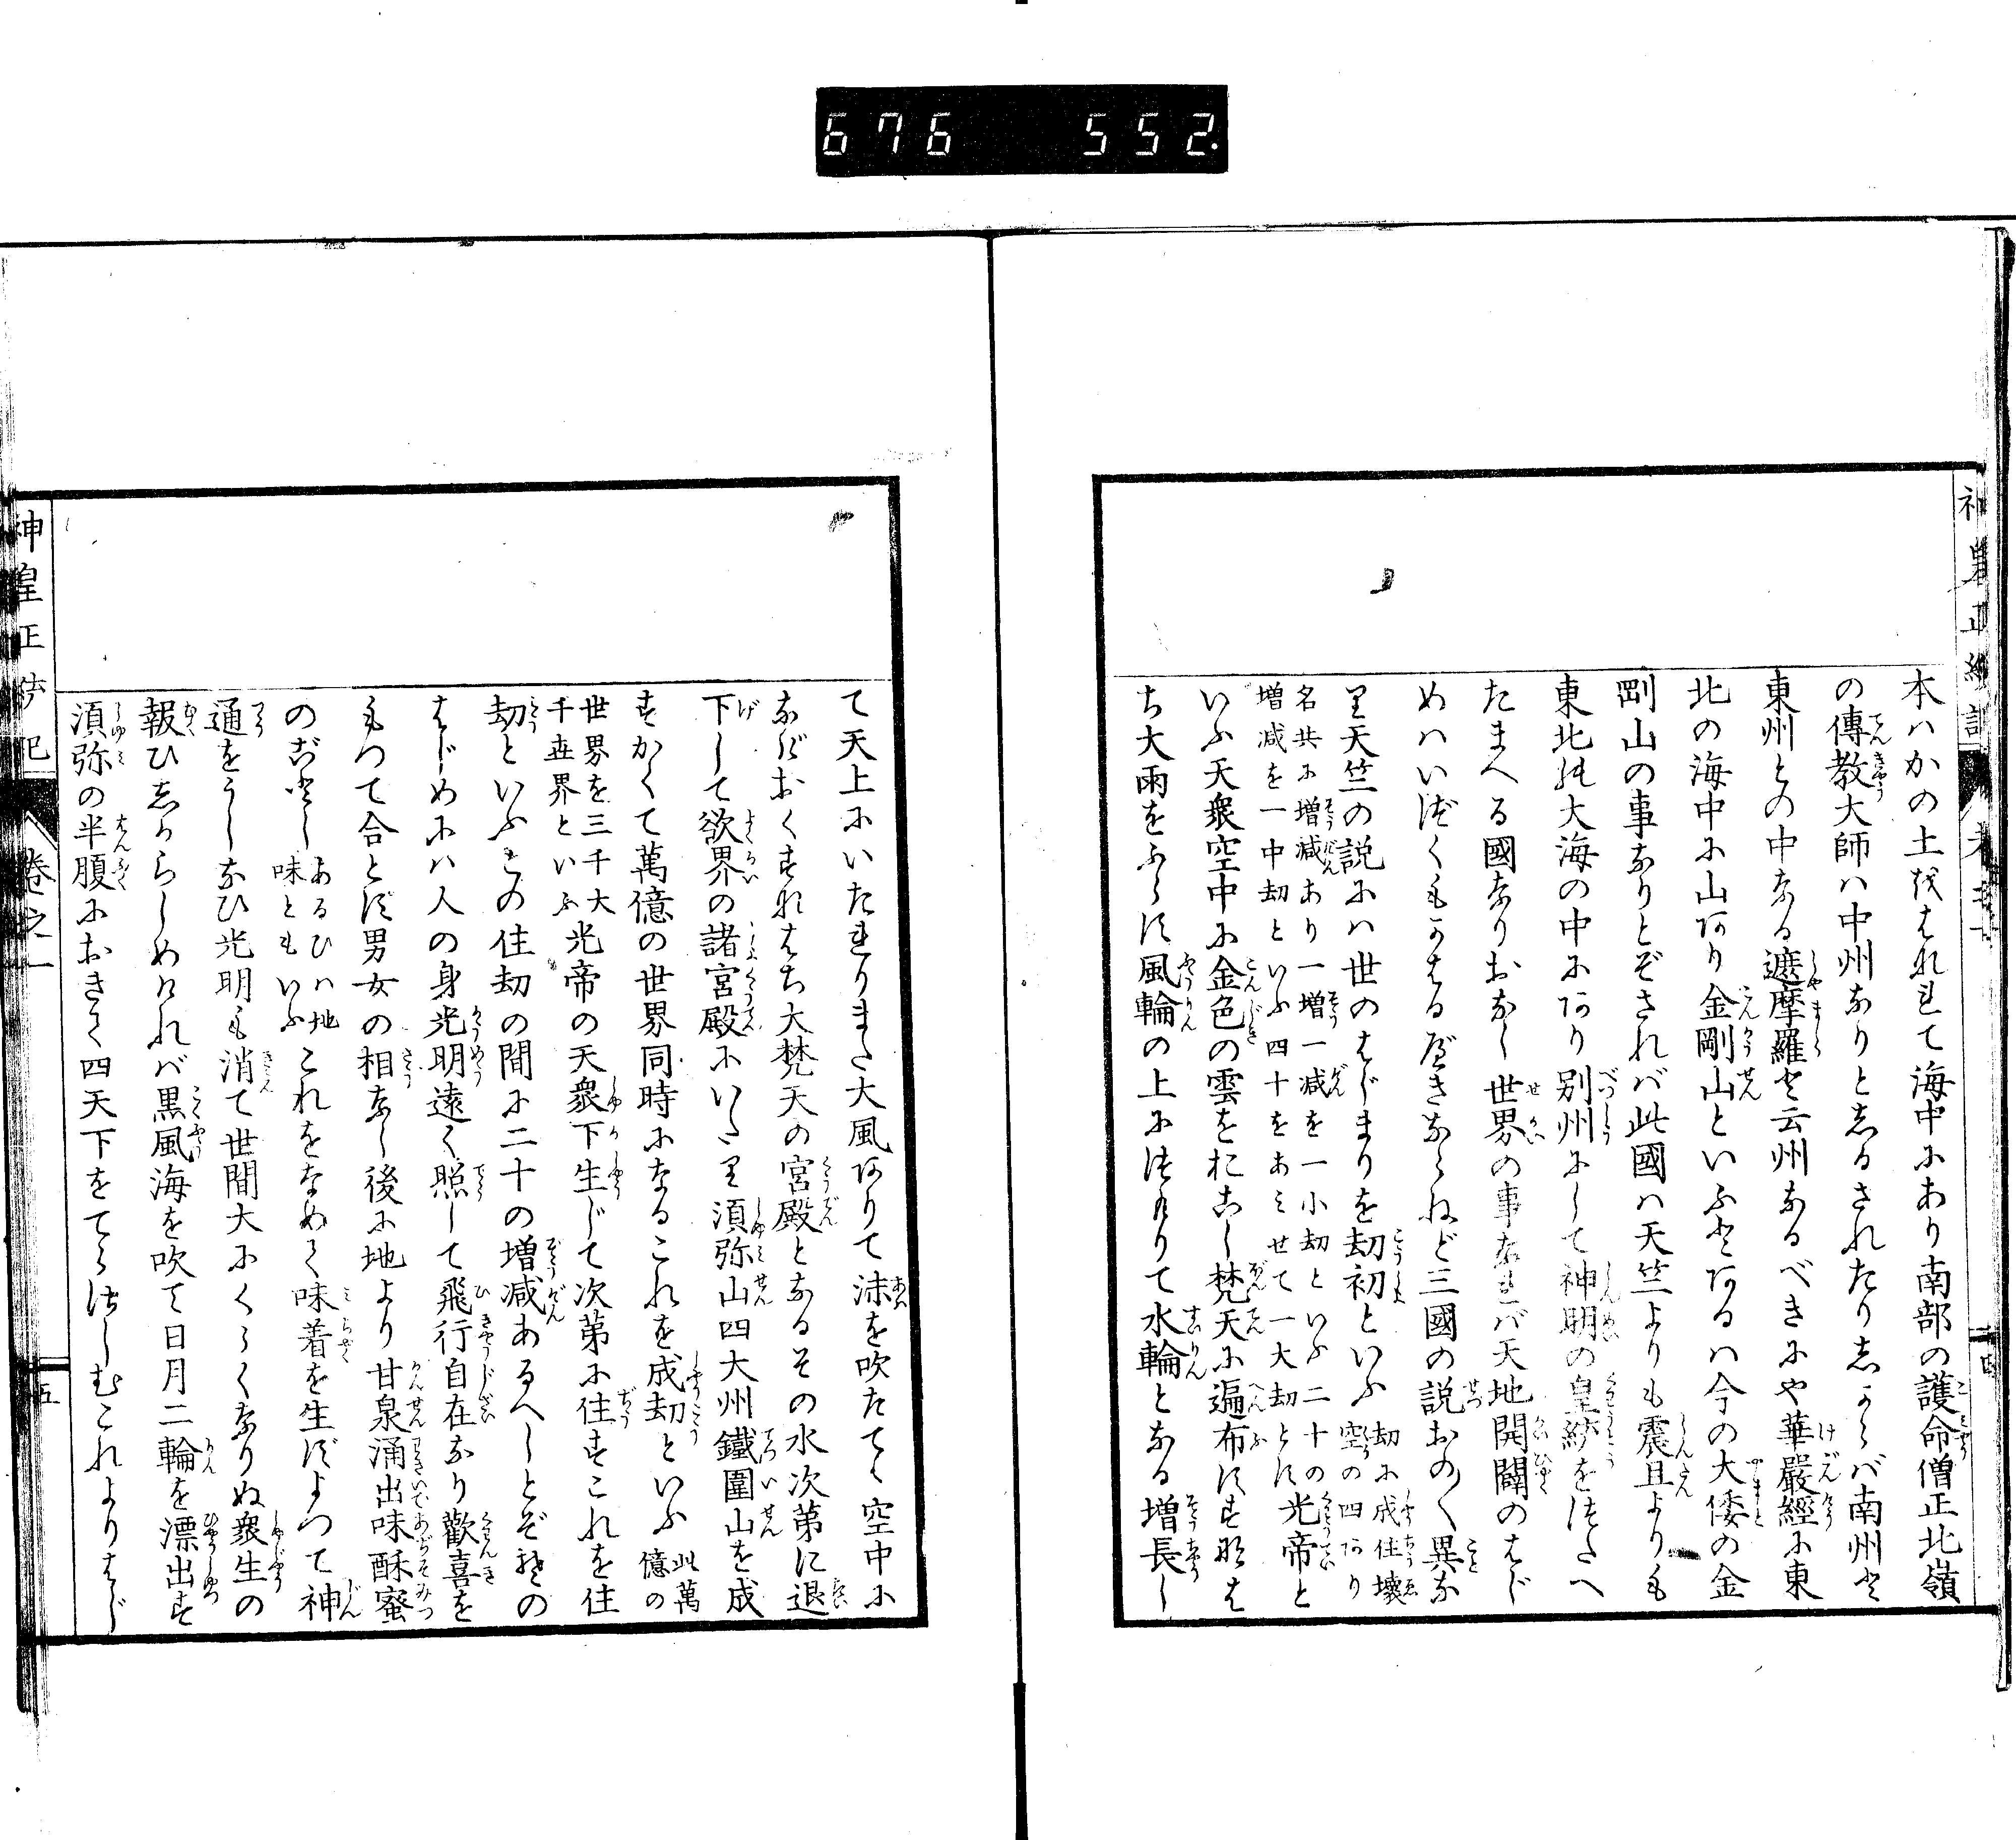 676 552.
神皇正統記
本ハかの土をはなれて海中にあり南部の護命僧正北嶺
の傳教大師ハ中州なりとしるされたりしからバ南州と
東州との中なる遮摩羅と云州なるべきにや華嚴經に東
北の海中に山あり金剛山といふとあるハ今の大倭の金
剛山の事なりとぞされバ此國ハ天竺よりも震旦よりも
東北の大海の中にあり別州にして神明の皇統をつたへ
たまへる國なりおなし世界の事なれバ天地開闢のはじ
めハいづくもかはるべきならねど三國の説おの〱異な
り天竺の説にハ世のはじまりを劫初といふ 劫に成住壞空の四あり
名共に増減あり一増一減を一小劫といふ二十の
増減を一中劫といふ四十をあはせて一大劫とす 光帝と
いふ天衆空中に金色の雲をおこし梵天に遍布すすなは
ち大雨をふらす風輪の上につもりて水輪となる増長し
四
て天上にいたれりまた大風ありて沫を吹たてゝ空中に
なげおくすなはち大梵天の宮殿となるその水次第に退
下して欲界の諸宮殿にいたり須弥山四大州鐵圍山を成
すかくて萬億の世界同時になるこれを成劫といふ 此萬億の
世界を三千大千世界といふ 光帝の天衆下生じて次第に住すこれを住
劫といふこの住劫の間に二十の増減あるへしとぞその
はじめにハ人の身光明遠く照して飛行自在なり歡喜を
もつて食とす男女の相なし後に地より甘泉涌出味酥蜜
のごとし あるひハ地味ともいふ これをなめて味着を生ずよつて神
通をうしなひ光明も消て世間大にくらくなりぬ衆生の
報ひしからしめけれバ黒風海を吹て日月二輪を漂出す
須弥の半腹におきて四天下をてらさしむこれよりはじ
神皇正統記
卷之一
五